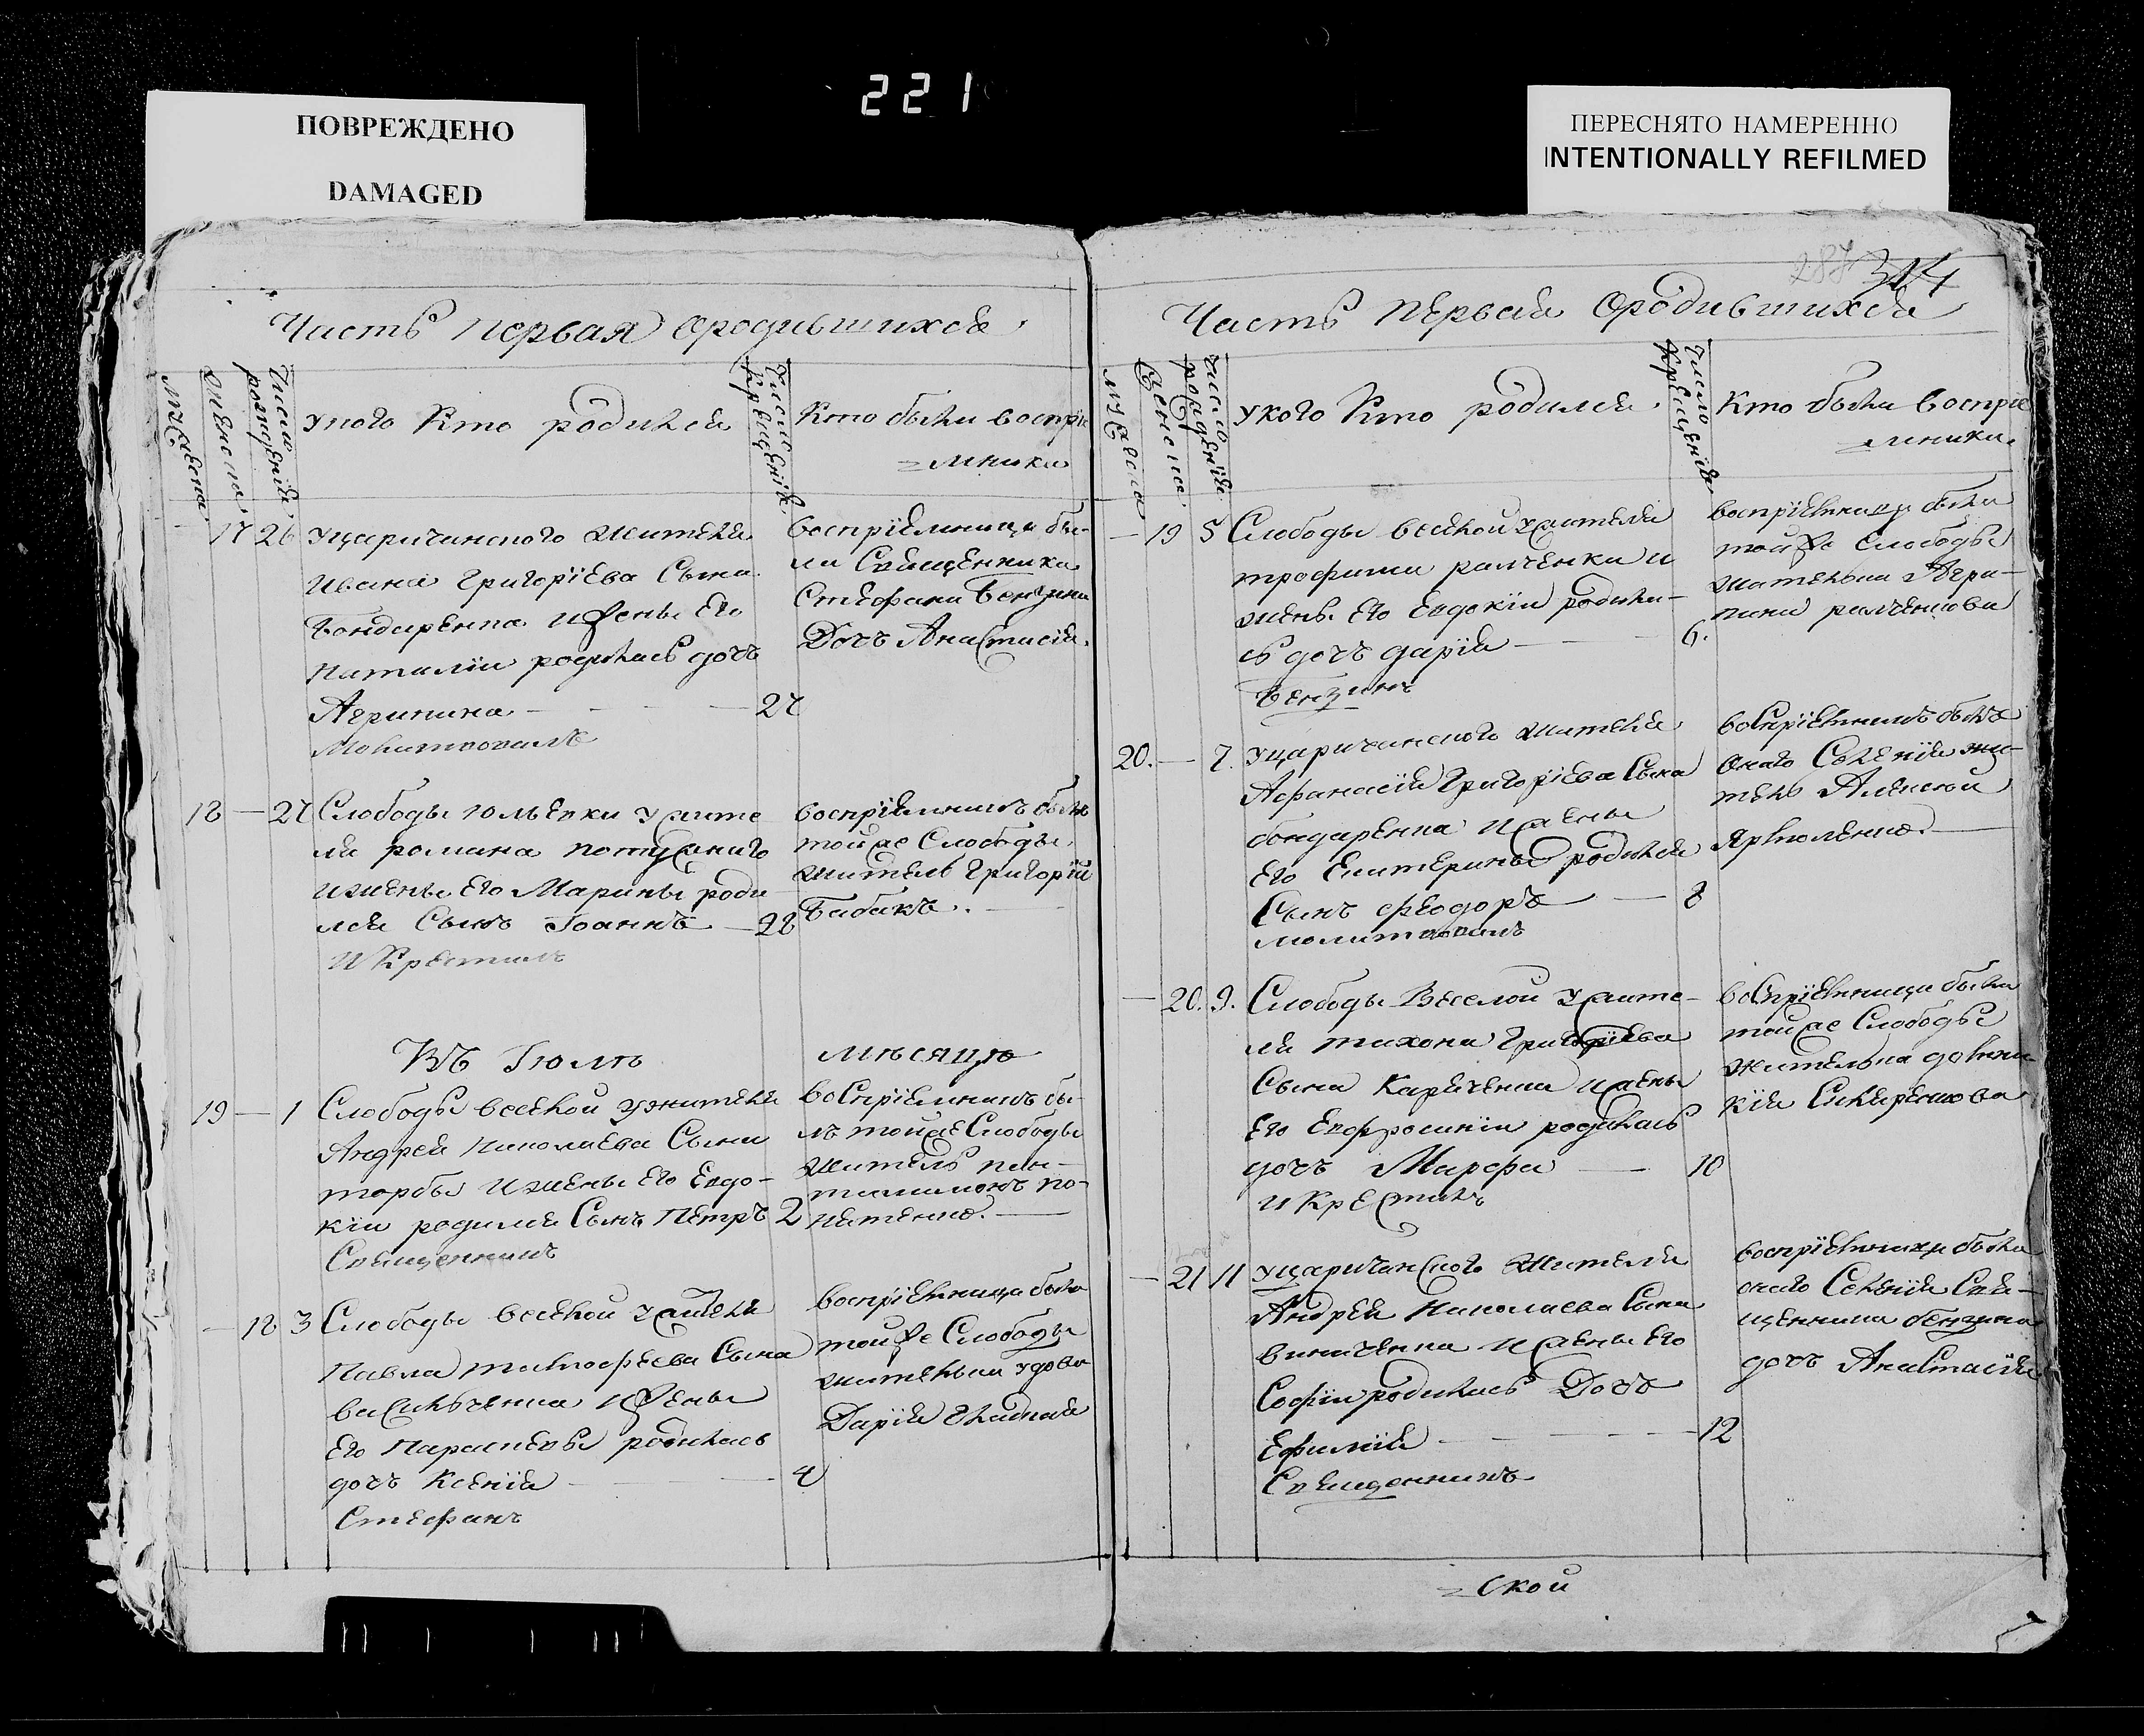 221
ПОВРЕЖДЕНО
DAMAGED
ПЕРЕСНЯТО НАМЕРЕННО
INTENTIONALLY REFILMED
Часть первая ородившихся
мужеска
женска
число рождения
у кого кто родился
число крещения
Кто были воспри
=мники
17 26 Уцаричанского жителя
Ивана Григорїева Сына
бондаренка и жены Его
Наталїи родилась дочь
Агрипина 27
Молитвовалъ
воспрїемница бы-
ла Священника
Стефана Бензина
Дочь Анастасїя.
18 — 27 Слободы Юльевки у жите
ля романа
и жены Его Марины роди
лся Сынъ Іоаннъ — 28
И Крестилъ
воспрїемникъ былъ
тойже Слободы
житель Григорїй
Бабакъ.
Въ Іюлѣ мѣсяцѣ
19 — 1 Слободы веселой у жителя
Андрея Николаева Сына
торбы и жены Его Евдо-
кїи родился Сынъ Петръ 2
Священникъ
воспрїемникъ бы-
лъ тойже Слободы
житель пан-
телимонъ
— 18 3 Слободы веселой у жителя
Павла тимофеева Сына
васильченка и жены
Его Параскевы родилась
дочь Ксенїя 4
Стефанъ
воспрїемница была
тойже Слободы
жителька удова
Дарїя Гладкая
287 314
Часть первая Ородившихся
мужеска
женска
число рождения
у кого Кто родился
число крещенїя
Кто были восприе
мники.
— 19 5 Слободы веселой у жителя
трофима радченка и
жены Его Евдокїи родила-
сь дочь дарїя 6.
бензинъ
воспрїемница была
тойже слободы
жителька Агри-
пина радченкова
20. — 7. Уцаричанского жителя
Афанасїя Григорїева Сына
бондаренка и жены
Его Екатерины родился
Сынъ феодоръ — 8
молитвовалъ
воспрїемникъ былъ
Онаго Селенїя жи-
тель Алексей
Ярмоленко.
— 20. 9. Слободы Веселой у жите-
ля тихона Григорїева
Сына Кириченка и жены
Его Евфросинїи родилась
дочь Марфа — 10
и Крестилъ
воспрїемница была
тойже Слободы
жителька домни
кїя
— 21 11 Уцаричанского жителя
Андрея Николаева Сына
виниченка и жены Его
Софїи родилась Дочь
Ефимїя 12
Священникъ
воспрїемница была
онаго Селенїя Свя-
щенника бензина
дочь Анастасїя
=ской